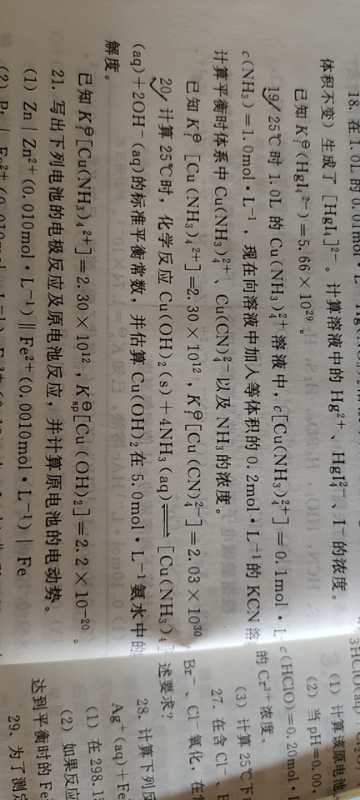 18. 在1.0L的0.
体积不变) 生成了 [HgI₄]²⁻。计算溶液中的 Hg²⁺、HgI₄²⁻、I⁻的浓度。
已知 K_f^⊖(HgI₄²⁻)=5.66×10²⁹。
19. 25℃时 1.0L 的 Cu(NH₃)₄²⁺溶液中,c[Cu(NH₃)₄²⁺]=0.1mol·L
c(NH₃)=1.0mol·L⁻¹,现在向溶液中加入等体积的 0.2mol·L⁻¹的 KCN 溶
计算平衡时体系中 Cu(NH₃)₄²⁺、Cu(CN)₄²⁻以及 NH₃ 的浓度。
已知 K_f^⊖[Cu(NH₃)₄²⁺]=2.30×10¹²,K_f^⊖[Cu(CN)₄²⁻]=2.03×10³⁰
20. 计算 25℃时,化学反应 Cu(OH)₂(s)+4NH₃(aq)⇌[Cu(NH₃)₄
(aq)+2OH⁻(aq)的标准平衡常数,并估算 Cu(OH)₂ 在 5.0mol·L⁻¹氨水中的
解度。
已知 K_f^⊖[Cu(NH₃)₄²⁺]=2.30×10¹²,K_sp^⊖[Cu(OH)₂]=2.2×10⁻²⁰。
21. 写出下列电池的电极反应及原电池反应,并计算原电池的电动势。
(1) Zn | Zn²⁺(0.010mol·L⁻¹) ‖ Fe²⁺(0.0010mol·L⁻¹) | Fe
(2) Pt | Fe²⁺(0.010mol·L⁻¹)
(1) 计算该原电池
(2) 当 pH=0.00,
c(HClO)=0.20mol·
的 Cr³⁺浓度。
(3) 计算 25℃下
27. 在含 Cl⁻、
Br⁻、Cl⁻氧化,在
述要求?
28. 计算下列反
Ag⁺(aq)+Fe
(1) 在 298.1
(2) 如果反应
达到平衡时的 Fe
29. 为了测定